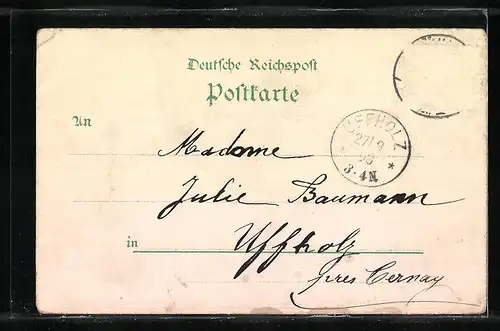 Deutsche Reichspost
Postkarte
An
UFFHOLZ
27/9
3-4N.
Madame
Julie Baumann
in Uffholz
pres Cernay